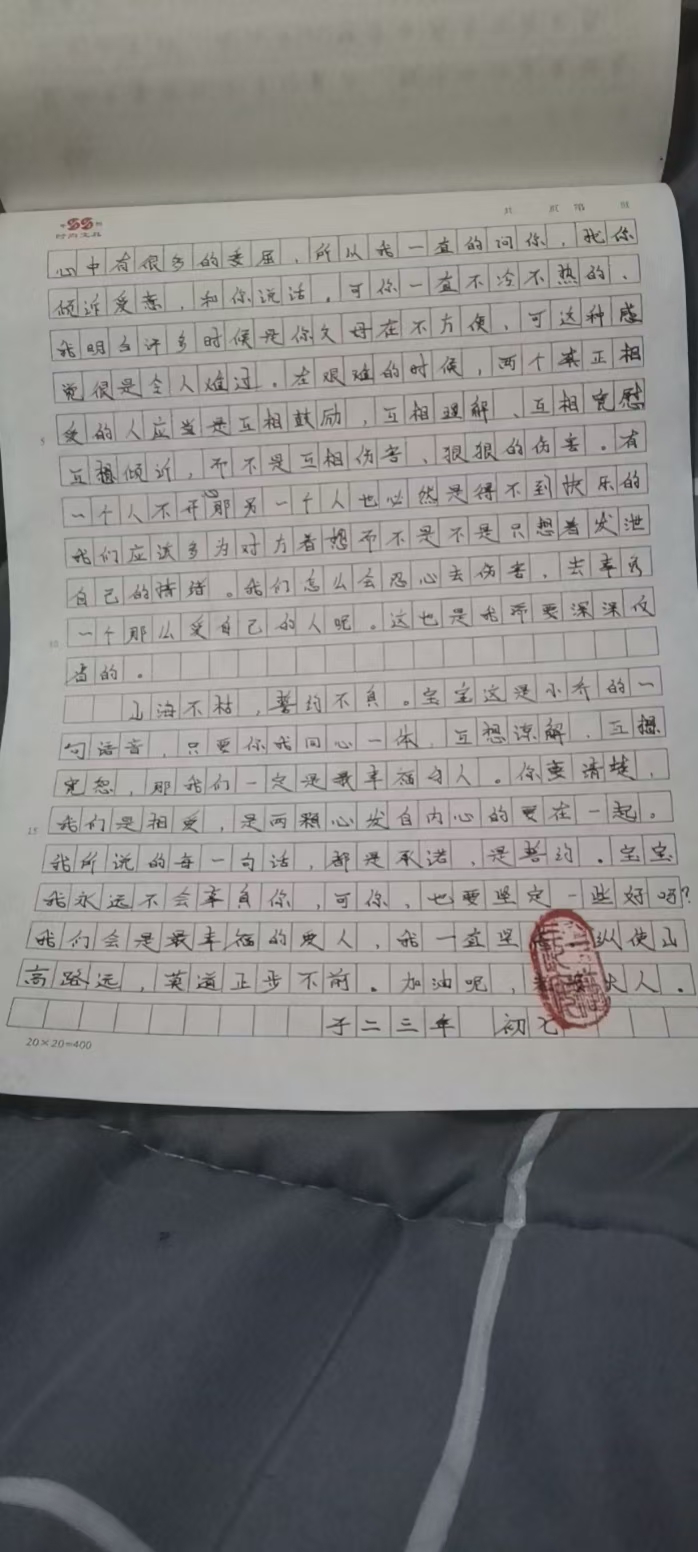 共 页 第 页
时尚文具
心中有很多的委屈，所以我一直的问你，找你
倾诉爱意，和你说话。可你一直不冷不热的、
我明白许多时候是你父母在不方便、可这种感
觉很是令人难过。在艰难的时候，两个真正相
爱的人应当是互相鼓励，互相理解、互相宽慰
5
互想倾诉，而不是互相伤害、狠狠的伤害。有
一个人不开心那另一个人也必然是得不到快乐的
我们应该多为对方着想而不是不是只想着发泄
自己的情绪。我们怎么会忍心去伤害、去辜负
一个那么爱自己的人呢。这也是我需要深深反
10
省的。
山海不枯，誓约不负。宝宝这是小乔的一
句语音，只要你我同心一体、互想谅解、互想
宽恕，那我们一定是最幸福的人。你要清楚，
我们是相爱，是两颗心发自内心的要在一起。
15
我所说的每一句话，都是承诺，是誓约。宝宝
我永远不会辜负你，可你，也要坚定一些好吗？
我们会是最幸福的爱人，我一直坚 纵使山
高路远，莫道正步不前。加油呢， 大人。
于二三年 初七
20×20=400